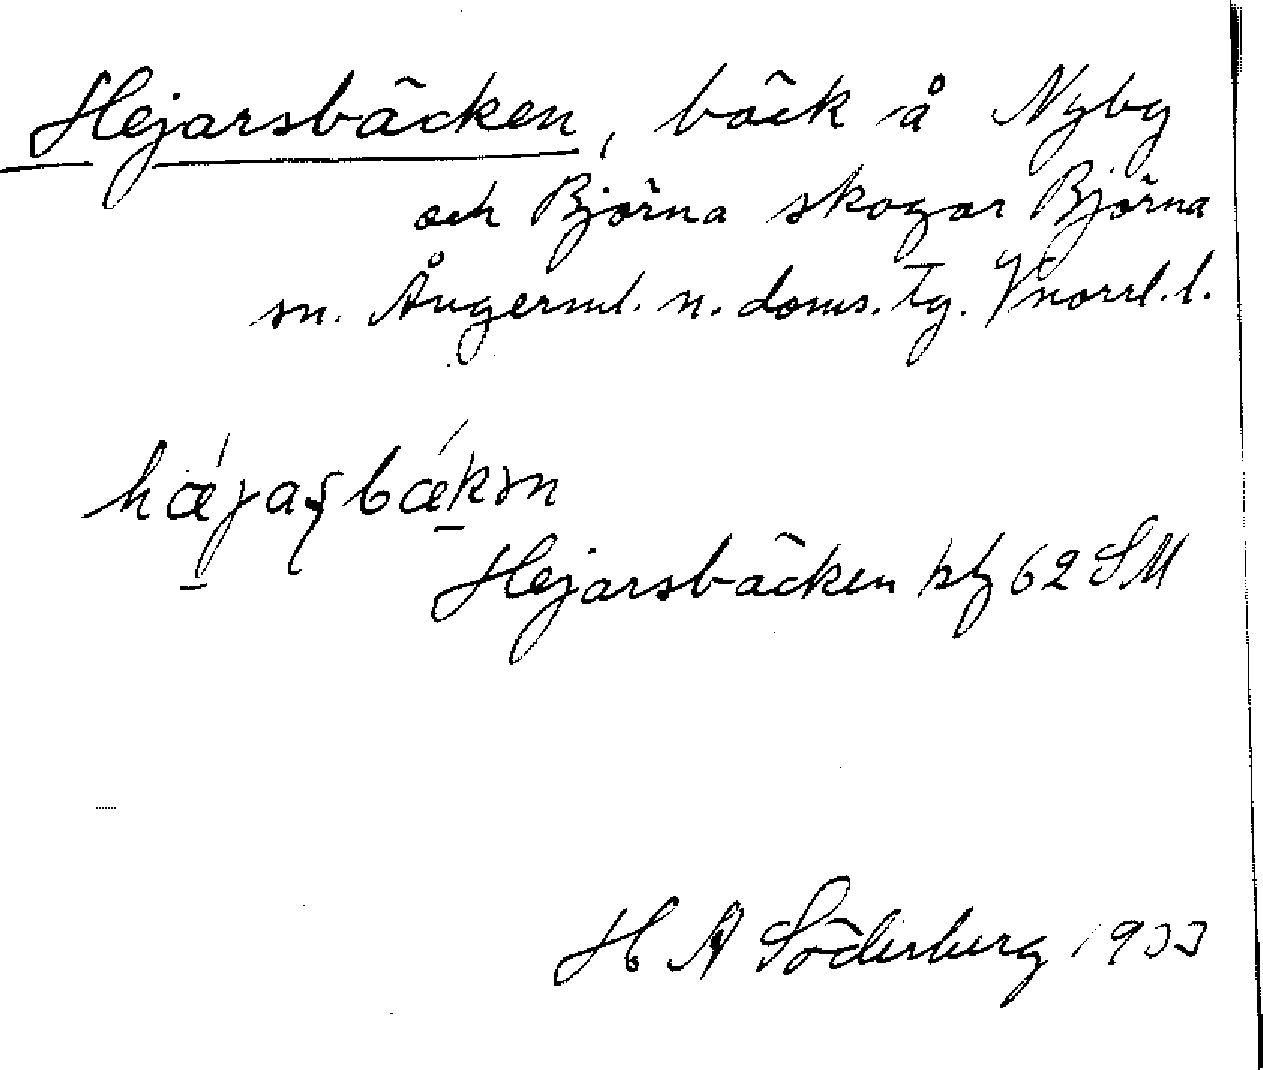 Hejarsbäcken, bäck å Nyby
och Björna skogar Björna
sn. Ångerml. n. doms. tg. Vnorrl. l.
Hejarsbäcken 62 SM
H A Söderberg 1933